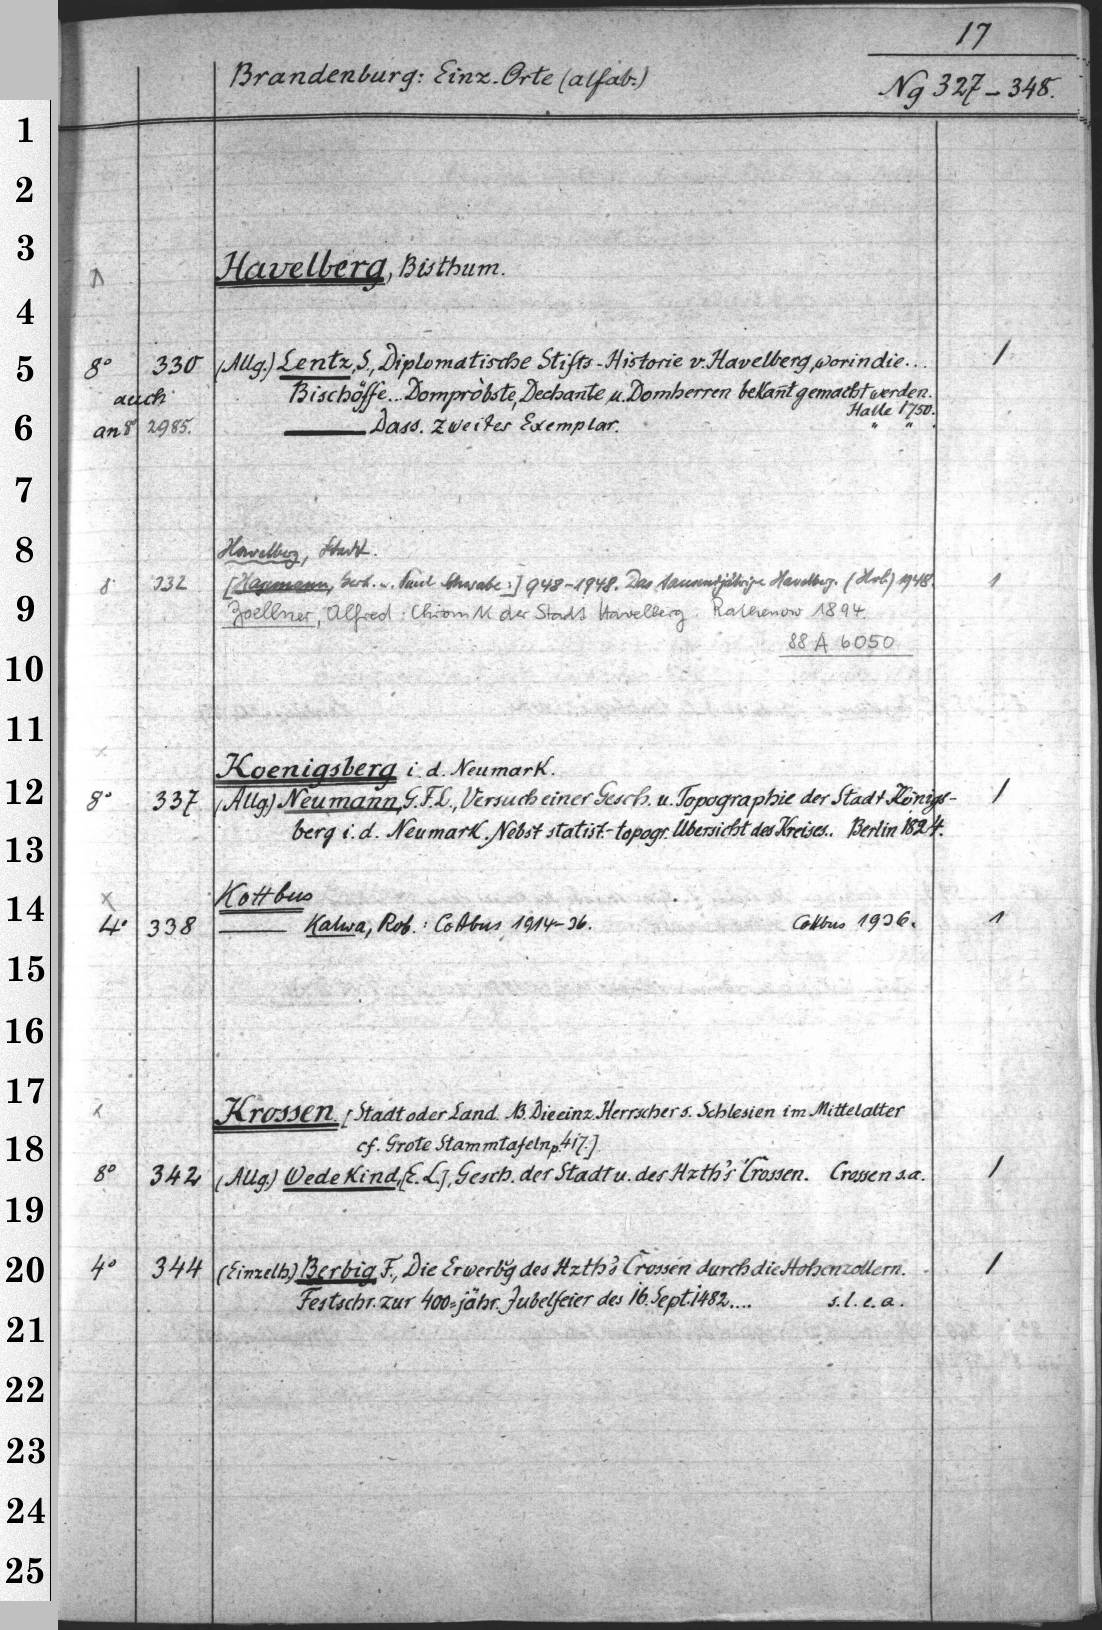 17
Brandenburg: Einz. Orte (alfab:)
Ng 327-348.
1
2
3
Havelberg, Bisthum.
4
5
8° 330 (Allg.) Lentz, S., Diplomatische Stifts-Historie v. Havelberg, worin die... 1
auch Bischöffe... Dompröbste, Dechante u. Domherren bekan̄t gemacht werden.
Halle 1750.
6
an 8° 2985. ——— Dass. zweiter Exemplar. " " .
7
8
Havelberg, Stadt.
8 332 [Hagmann, Gerh. u. Paul Schwabe:] 948-1948. Das tausendjährige Havelberg. (Hvb) 1948. 1
9
Zoellner, Alfred: Chronik der Stadt Havelberg. Rathenow 1894.
88 A 6050
10
11
x
Koenigsberg i. d. Neumark.
12
8° 337 (Allg) Neumann, G.F.L., Versuch einer Gesch. u. Topographie der Stadt Königs- 1
berg i. d. Neumark. Nebst statist.-topogr. Übersicht des Kreises.. Berlin 1824.
13
x Kottbus
14
4° 338 ——— Kalwa, Rob.: Cottbus 1914-36. Cottbus 1936. 1
15
16
17
x Krossen [Stadt oder Land. NB. Die einz. Herrscher s. Schlesien im Mittelalter
18
cf. Grote Stammtafeln p. 417.]
8° 342 (Allg.) Wedekind, [E. L.], Gesch. der Stadt u. des Hzth's Crossen. Crossen s.a. 1
19
20
4° 344 (Einzelh.) Berbig F., Die Erwerb̆g des Hzth's Crossen durch die Hohenzollern. 1
Festschr. zur 400=jähr. Jubelfeier des 16. Sept. 1482.... s. l. e. a.
21
22
23
24
25